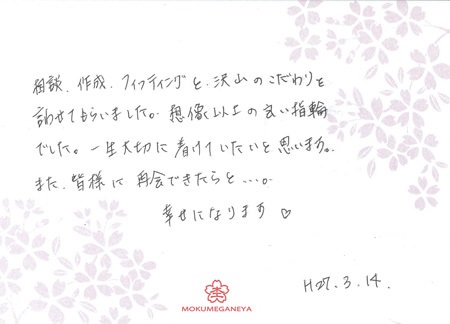 相談、作成、フィッティングと、沢山のこだわりを
言わせてもらいました。想像以上の良い指輪
でした。一生大切に着けていたいと思います。
また、皆様に再会できたらと…。
幸せになります♡
H27.3.14.
MOKUMEGANEYA